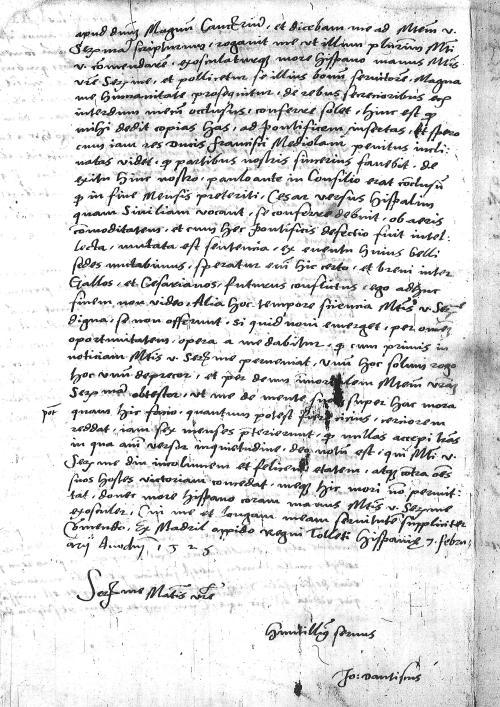 apud dnm Magnum Cancellariu, et dicebam me ad Mtem v.
Serma scripturum, rogavit me, ut illum plurimu Mti
v. comendare, exosculaturusq more hispano manus Mtis
vre Serme, et pollicetur se illius bonu servitore, Magna
me humanitate prosequitur, de rebus secretioribus
interdum mecu occlusus, conferre solet, hinc est q
mihi dedit copias has, ad pontificem insertas, et spero
cum iam res Ducis Francisci Mediolani penitus incli:
natas videt, q partibus nostris sincerius favebit, de
exitu hinc nostro, paulo ante in Consilio erat coclusu
q in fine Mensis preteriti, Cesar versus Hispalim
quam Siviliam vocant, se conferre debuit, ob aeris
comoditatem, et cum hec pontificis defectio fuit intel:
lecta, mutata est sententia, ex eventu huius belli
sedes mutabimus, speratur em hic certo, et brevi inter
Gallos, et Cesarianos, futurus conflictus, ego adhuc
finem non video, Alia hoc tempore sciencia Mtis v. Serme
digna, se non offerunt, si quid novi emerget, per omne
oportunitatem, opera a me dabitur, q cum primis in
notitiam Mtis v. Serme perveniat, unu hoc solum rogo
hoc unu deprecor, et per deum immortalem Mtem vram
Sermam obtestor, ut me de mente sua super hac mora
quam hic facio, quantum potest
pot
reddat, iam sex menses preterierunt, q nullas accepi lras
in qua animi verser inquietudine, deo notu est, qui Mti v.
Serme diu incolumem et felicem etatem, atq cotra oes
suos hostes victoriam concedat, meq hic mori no permit:
tat, donec more hispano coram manus Mtis v. Serme
exosculer, Cui me et longam meam servitute suppliciter
Comendo, Ex Madril oppido regni Tolleti Hispaniae 7. febru:
arii Anno dni 1525

Serme Matis vre

humilliq servus

Jo: dantiscus